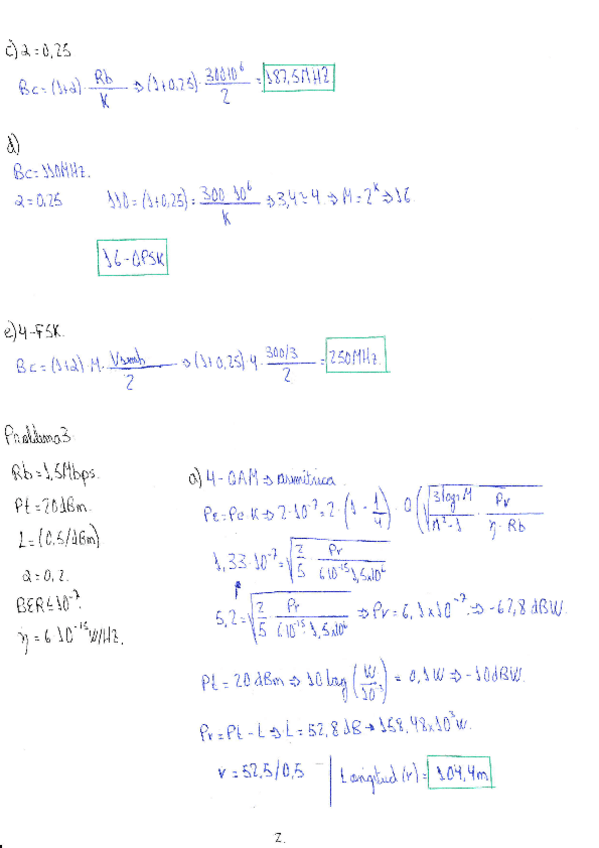 c) α=0,25
Bc=(1+α)·Rb/K ⇒ (1+0,25)·300·10⁶/2 = 187,5MHz
d)
Bc=110MHz.
α=0,25 110=(1+0,25)=300·10⁶/K ⇒ 3,4≈4 ⇒ M=2ᴷ ⇒ 16
16-QPSK
e) 4-FSK.
Bc=(1+α)·M·Vsimb/2 ⇒ (1+0,25)·4·300/3/2 = 250MHz.
Problema 3
Rb=1,5Mbps.
Pt=20dBm.
L=(0.5/dBm)
α=0,2.
BER≤10⁻⁷.
η=6·10⁻¹⁵W/Hz.
a) 4-QAM ⇒ simétrica.
Pe=Pe·K ⇒ 2·10⁻⁷=2·(1-1/4)·Q(√(3log₂M/M²-1 · Pr/η·Rb
1,33·10⁻⁷=√(2/5 · Pr/6·10⁻¹⁵·1,5x10⁶
5,2=√(2/5 · Pr/6·10⁻¹⁵·1,5x10⁶ ⇒ Pr=6,1x10⁻⁷ ⇒ -62,8dBW.
Pt=20dBm ⇒ 10log(W/10⁻³) = 0,1W ⇒ -10dBW.
Pr=Pt-L ⇒ L=52,8dB → 158,48x10³W.
r=52,5/0,5 | Longitud (r)= 104,4m
2.